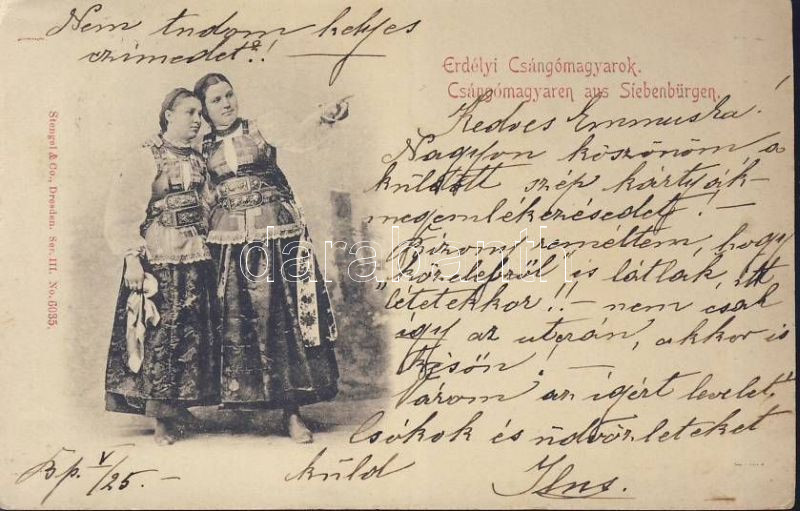 Nem tudom helyes
czimedet?!
Erdélyi Csángómagyarok.
Csángómagyaren aus Siebenbürgen.
Stengel & Co., Dresden. Ser. III. No. 6035.
Kedves Emmuska!
Nagyon köszönöm a
küldött szép kártyák-
megemlékezésedet! –
Bizony reméltem, hogy
"közelebről is látlak" itt
létetekkor!! – nem csak
így az utczán, akkor is
későn. –
Várom az igért levelet!
Csókok és üdvözleteket
küld
Bp. V/25. –
darabanth